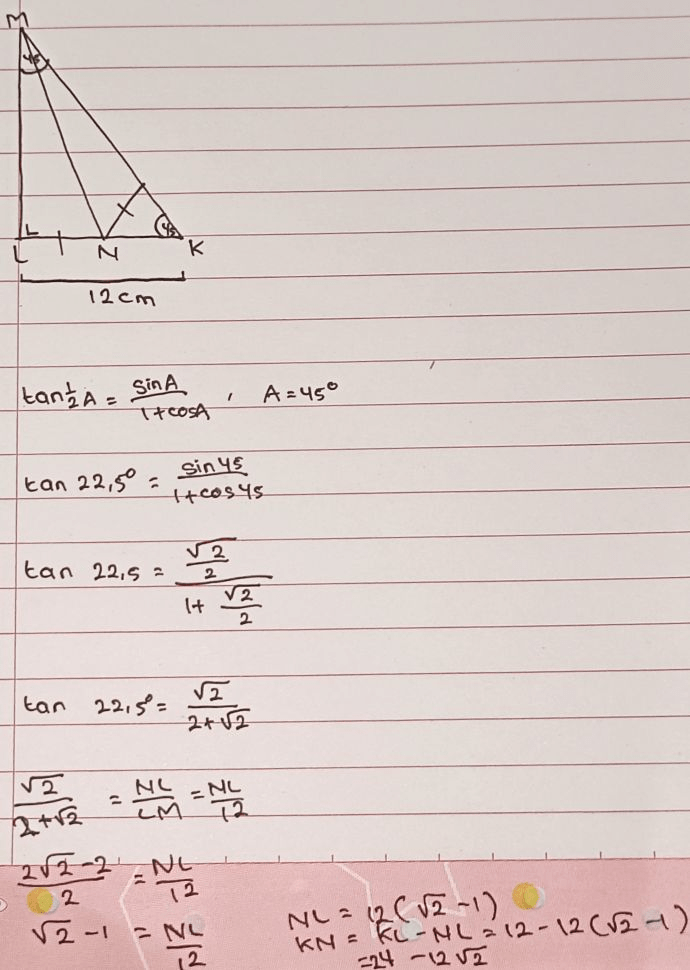 M
45
45
L N K
12cm
tan½A = sinA/1+cosA , A=45°
tan 22,5° = sin45/1+cos45
tan 22,5 = (√2/2)/(1+√2/2)
tan 22,5° = √2/2+√2
√2/2+√2 = NL/LM = NL/12
2√2-2/2 = NL/12
√2-1 = NL/12
NL = 12(√2-1)
KN = KL-NL = 12-12(√2-1)
=24-12√2